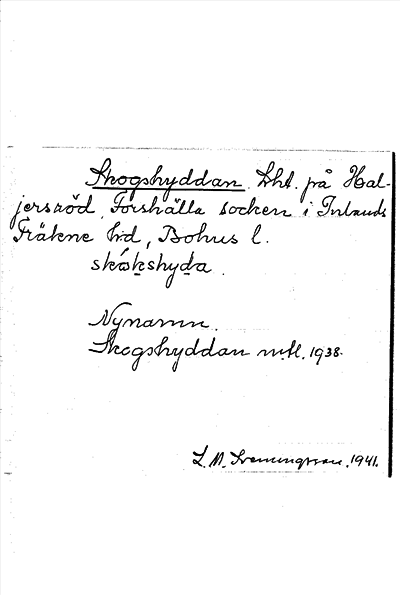 Skogshyddan. Lht. på Hal-
jersröd, Forshälla socken i Inlands
Fräkne hd, Bohus l.
skåkshyda.
Nynamn.
Skogshyddan mtl. 1938.
L. M. Svenungsson. 1941.